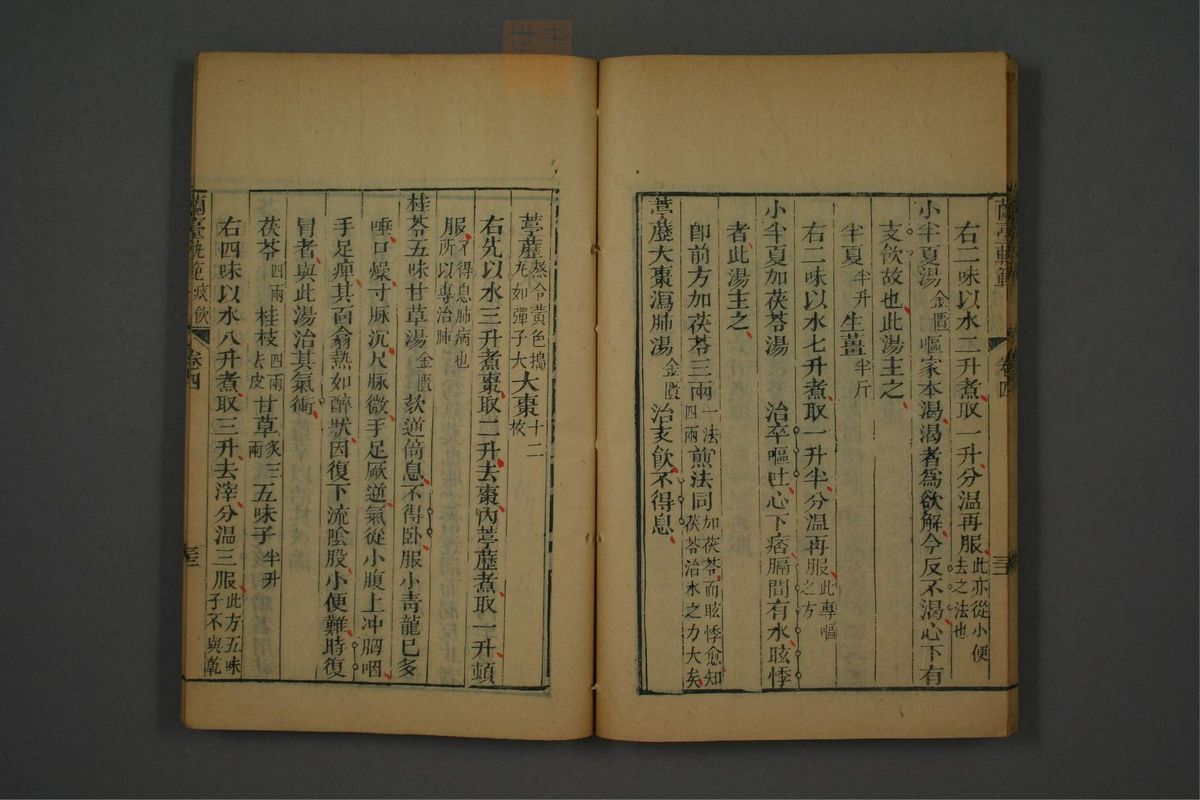 蘭臺軌範
卷四
右二味以水二升煮取一升分溫再服此亦從小便去之法也
小半夏湯金匱嘔家本渴渴者爲欲解今反不渴心下有
支飲故也此湯主之
半夏半升生薑半斤
右二味以水七升煮取一升半分溫再服此專嘔之方
小半夏加茯苓湯 治卒嘔吐心下痞膈間有水眩悸
者此湯主之
卽前方加茯苓三兩一法四兩煎法同如茯苓而眩悸愈知茯苓治水之力大矣
葶藶大棗瀉肺湯金匱治支飲不得息
葶藶熬令黃色搗丸如彈子大大棗十二枚
右先以水三升煮棗取二升去棗內葶藶煮取一升頓
服不得息肺病也所以專治肺
桂苓五味甘草湯金匱欬逆倚息不得臥服小青龍已多
唾口燥寸脉沉尺脉微手足厥逆氣從小腹上冲胸咽
手足痺其面翕熱如醉狀因復下流陰股小便難時復
冒者與此湯治其氣衝
茯苓四兩桂枝四兩去皮甘草炙三兩五味子半升
右四味以水八升煮取三升去滓分溫三服此方五味子不與乾
蘭臺軌範 痰飲
卷四